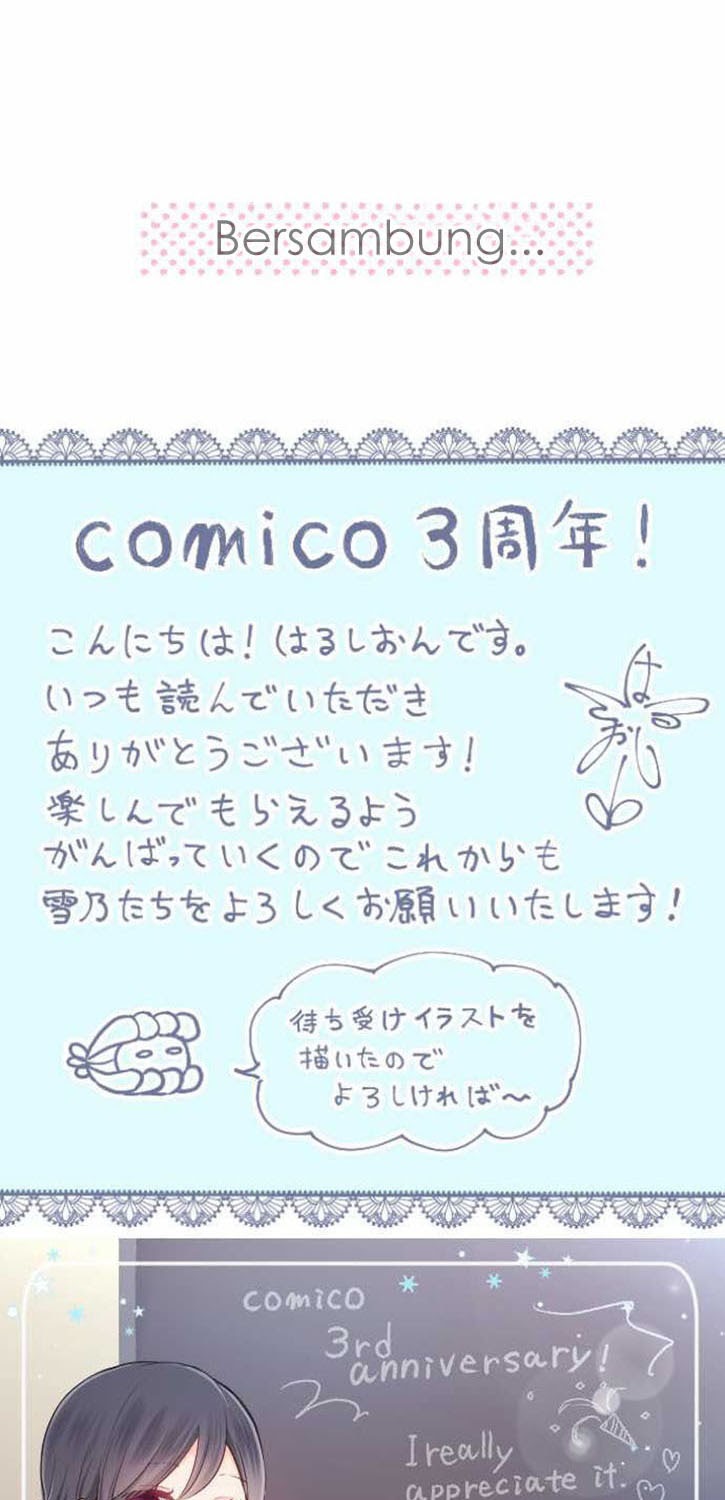 Bersambung...
comico 3周年!
こんにちは! はるしおんです。
いつも読んでいただき
ありがとうございます!
楽しんでもらえるよう
がんばっていくのでこれからも
雪乃たちをよろしくお願いいたします!
待ち受けイラストを
描いたので
よろしければ〜
comico
3rd
anniversary!
I really
appreciate it.